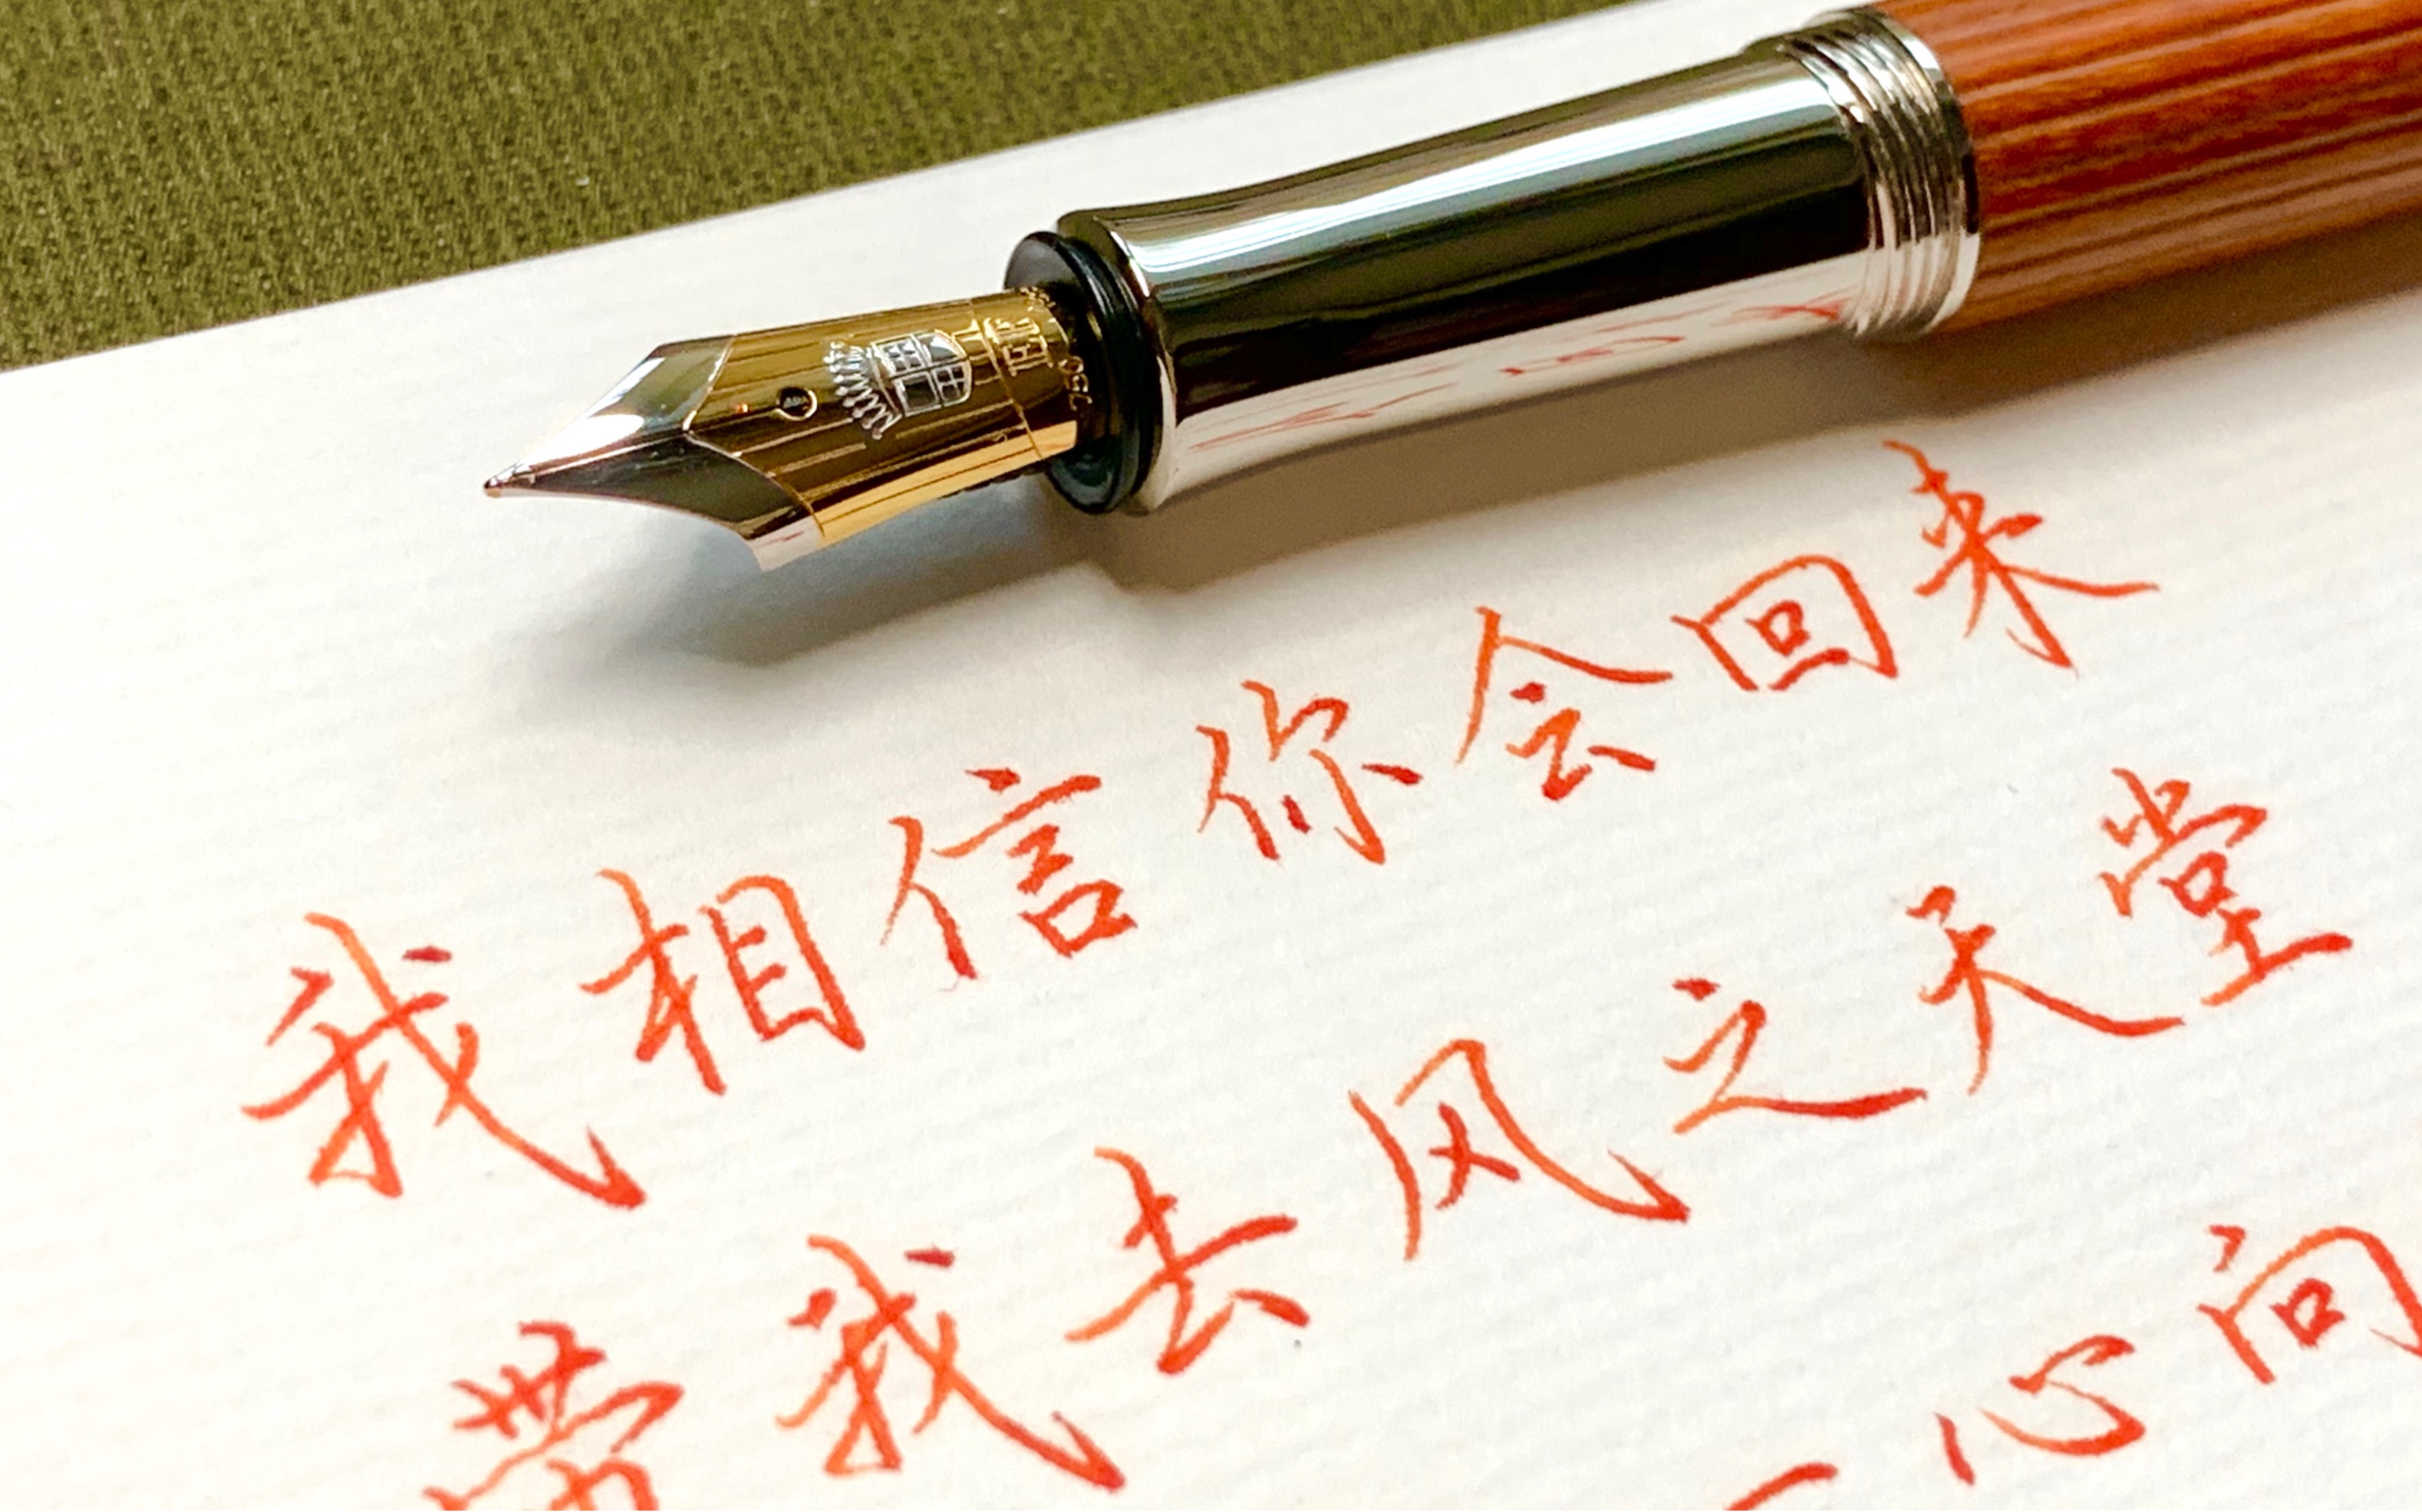 我相信你会回来
带我去风之天堂
一心向
750